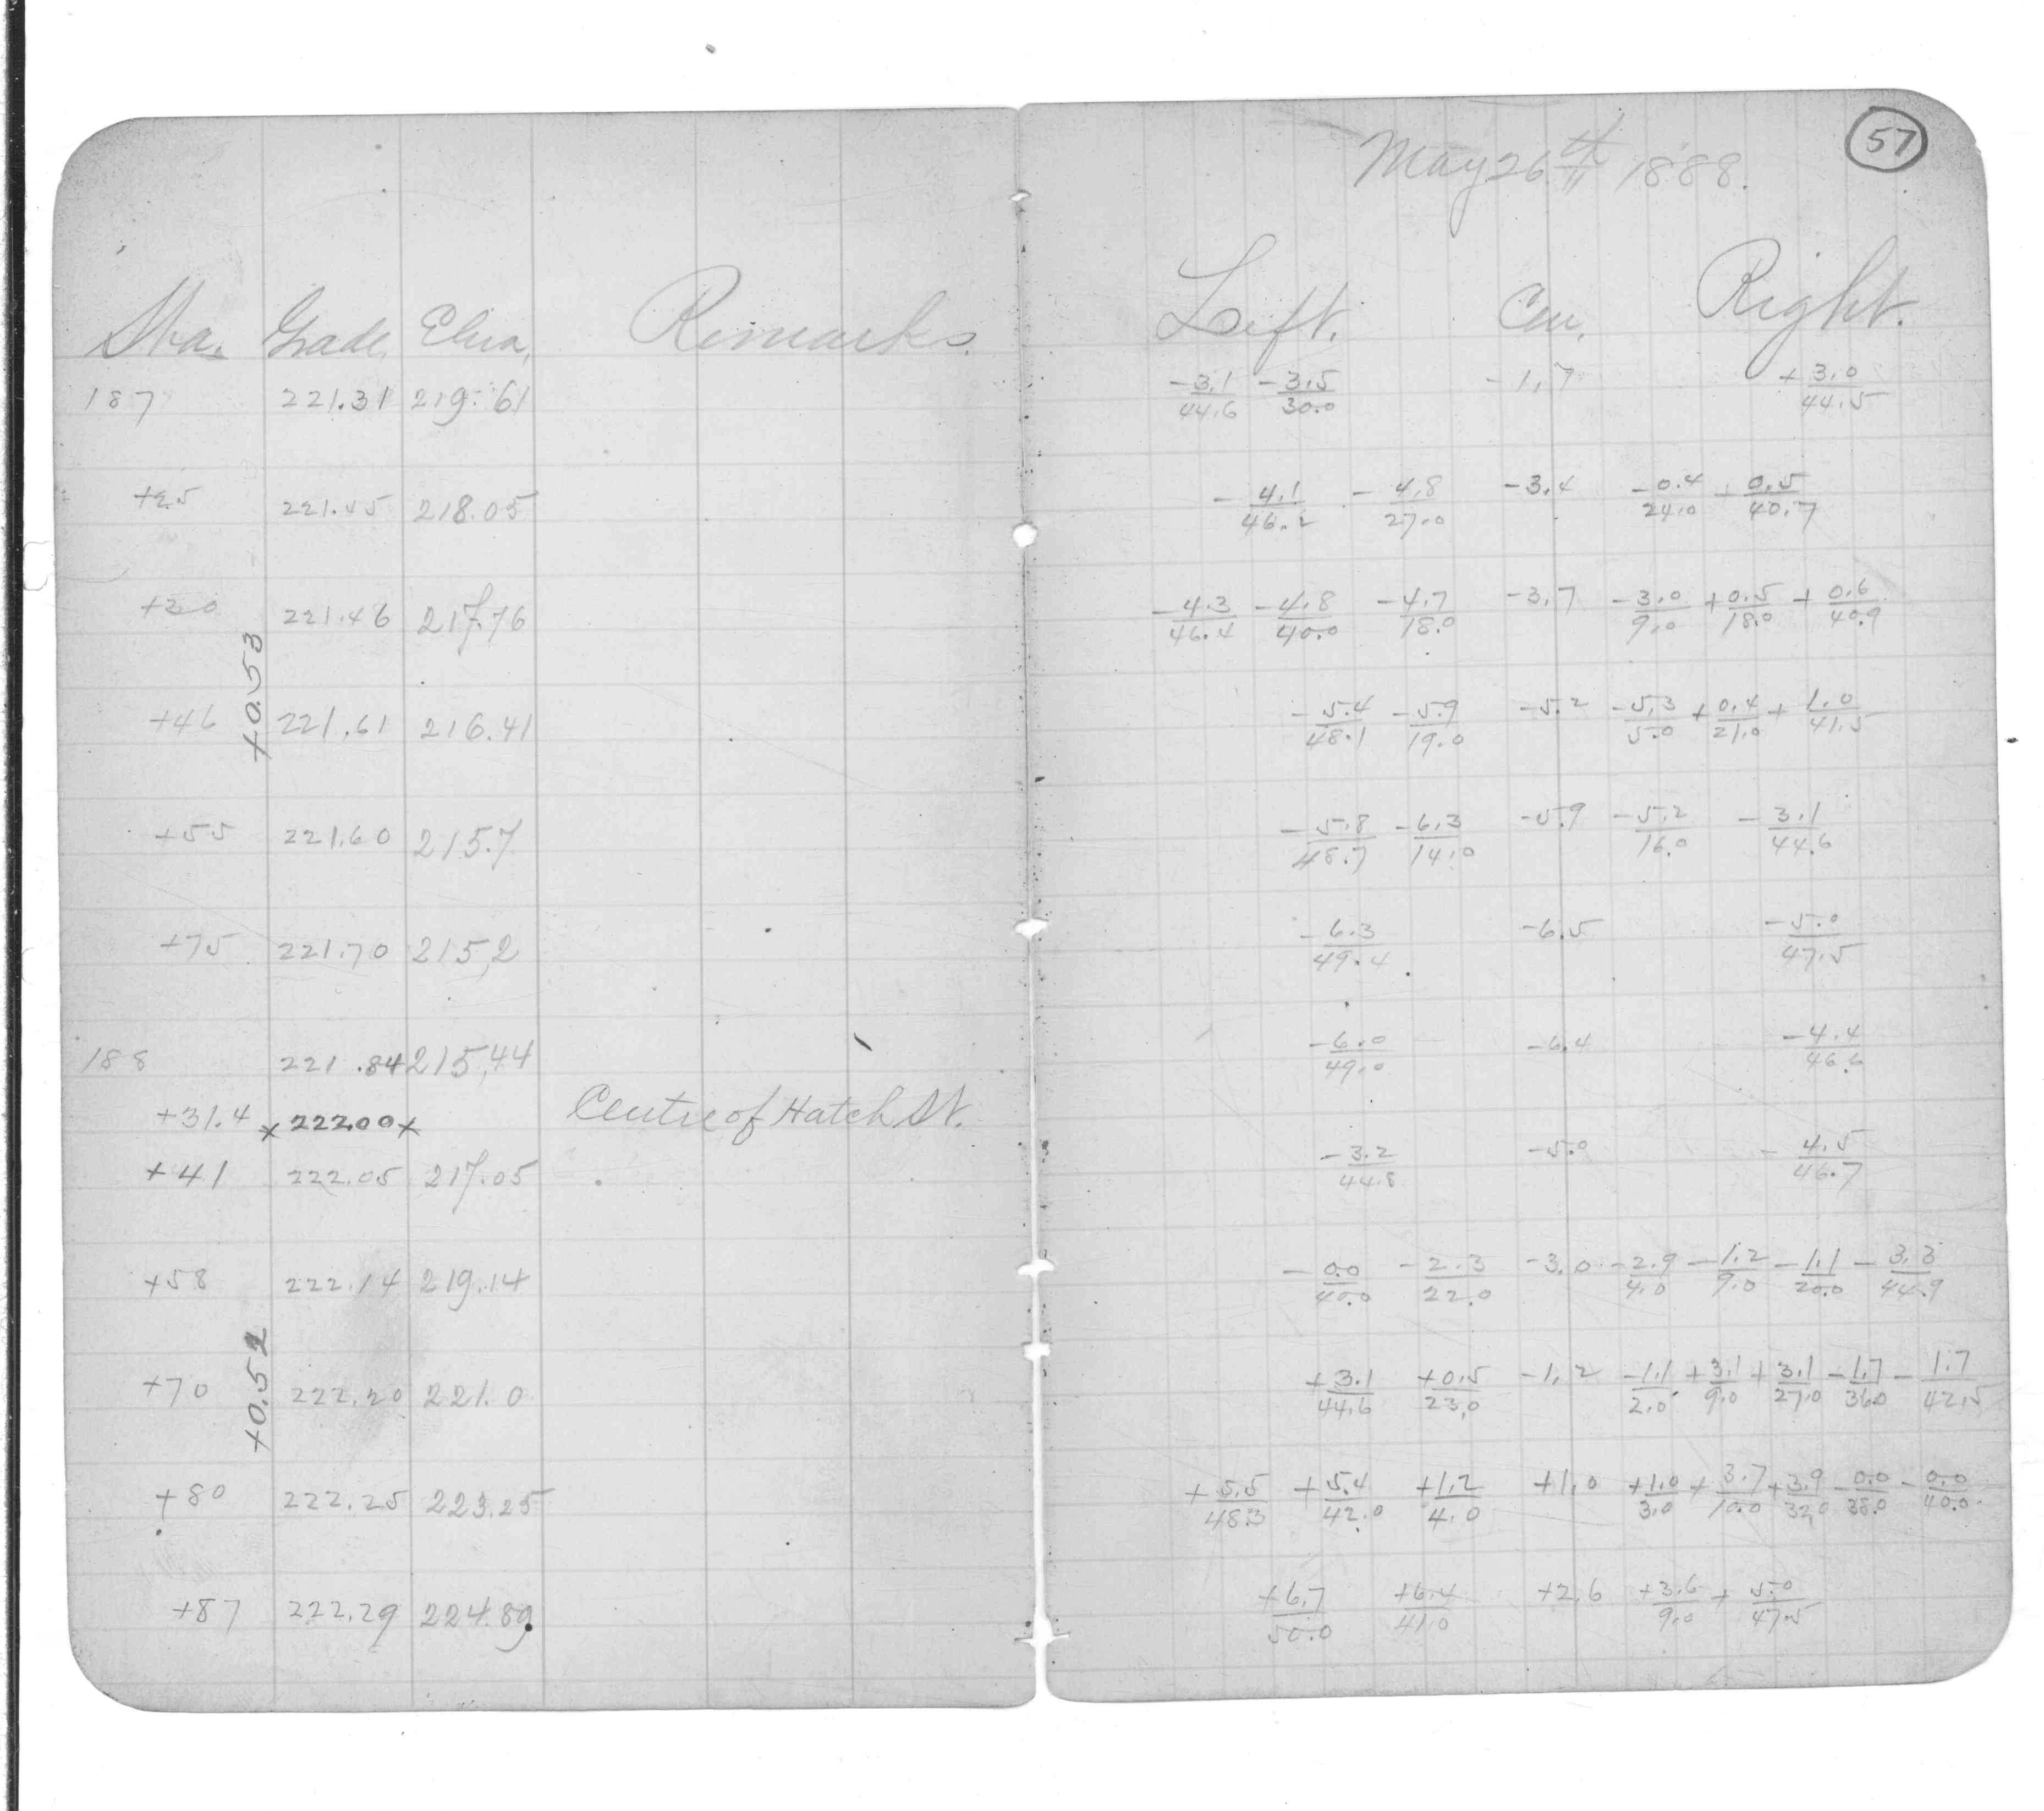 57
May 26th 1888.
Sta. Grade. Eleva. Remarks. Left. Cen. Right.
187 221.31 219.61 -3.1/44.6 -3.5/30.0 -1.7 +3.0/44.5
+25 221.45 218.05 -4.1/46.2 -4.8/27.0 -3.4 -0.4/24.0 +0.5/40.7
+30 221.46 217.76 -4.3/46.4 -4.8/40.0 -4.7/18.0 -3.7 -3.0/9.0 +0.5/18.0 +0.6/40.9
+0.53
+46 221.61 216.41 -5.4/48.1 -5.9/19.0 -5.2 -5.3/5.0 +0.4/21.0 +1.0/41.5
+55 221.60 215.7 -5.8/48.7 -6.3/14.0 -5.9 -5.2/16.0 -3.1/44.6
+75 221.70 215.2 -6.3/49.4 -6.5 -5.0/47.5
188 221.84 215.44 -6.0/49.0 -6.4 -4.4/46.6
+31.4 x 222.00 x Centre of Hatch St.
+41 222.05 217.05 -3.2/44.8 -5.0 -4.5/46.7
+58 222.14 219.14 -0.0/40.0 -2.3/22.0 -3.0 -2.9/4.0 -1.2/9.0 -1.1/20.0 -3.3/44.9
+0.52
+70 222.20 221.0 +3.1/44.6 +0.5/23.0 -1.2 -1.1/2.0 +3.1/9.0 +3.1/27.0 -1.7/36.0 -1.7/42.5
+80 222.25 223.25 +5.5/48.3 +5.4/42.0 +1.2/4.0 +1.0 +1.0/3.0 +3.7/10.0 +3.9/32.0 -0.0/38.0 -0.0/40.0
+87 222.29 224.89 +6.7/50.0 +6.4/41.0 +2.6 +3.6/9.0 +5.0/47.5